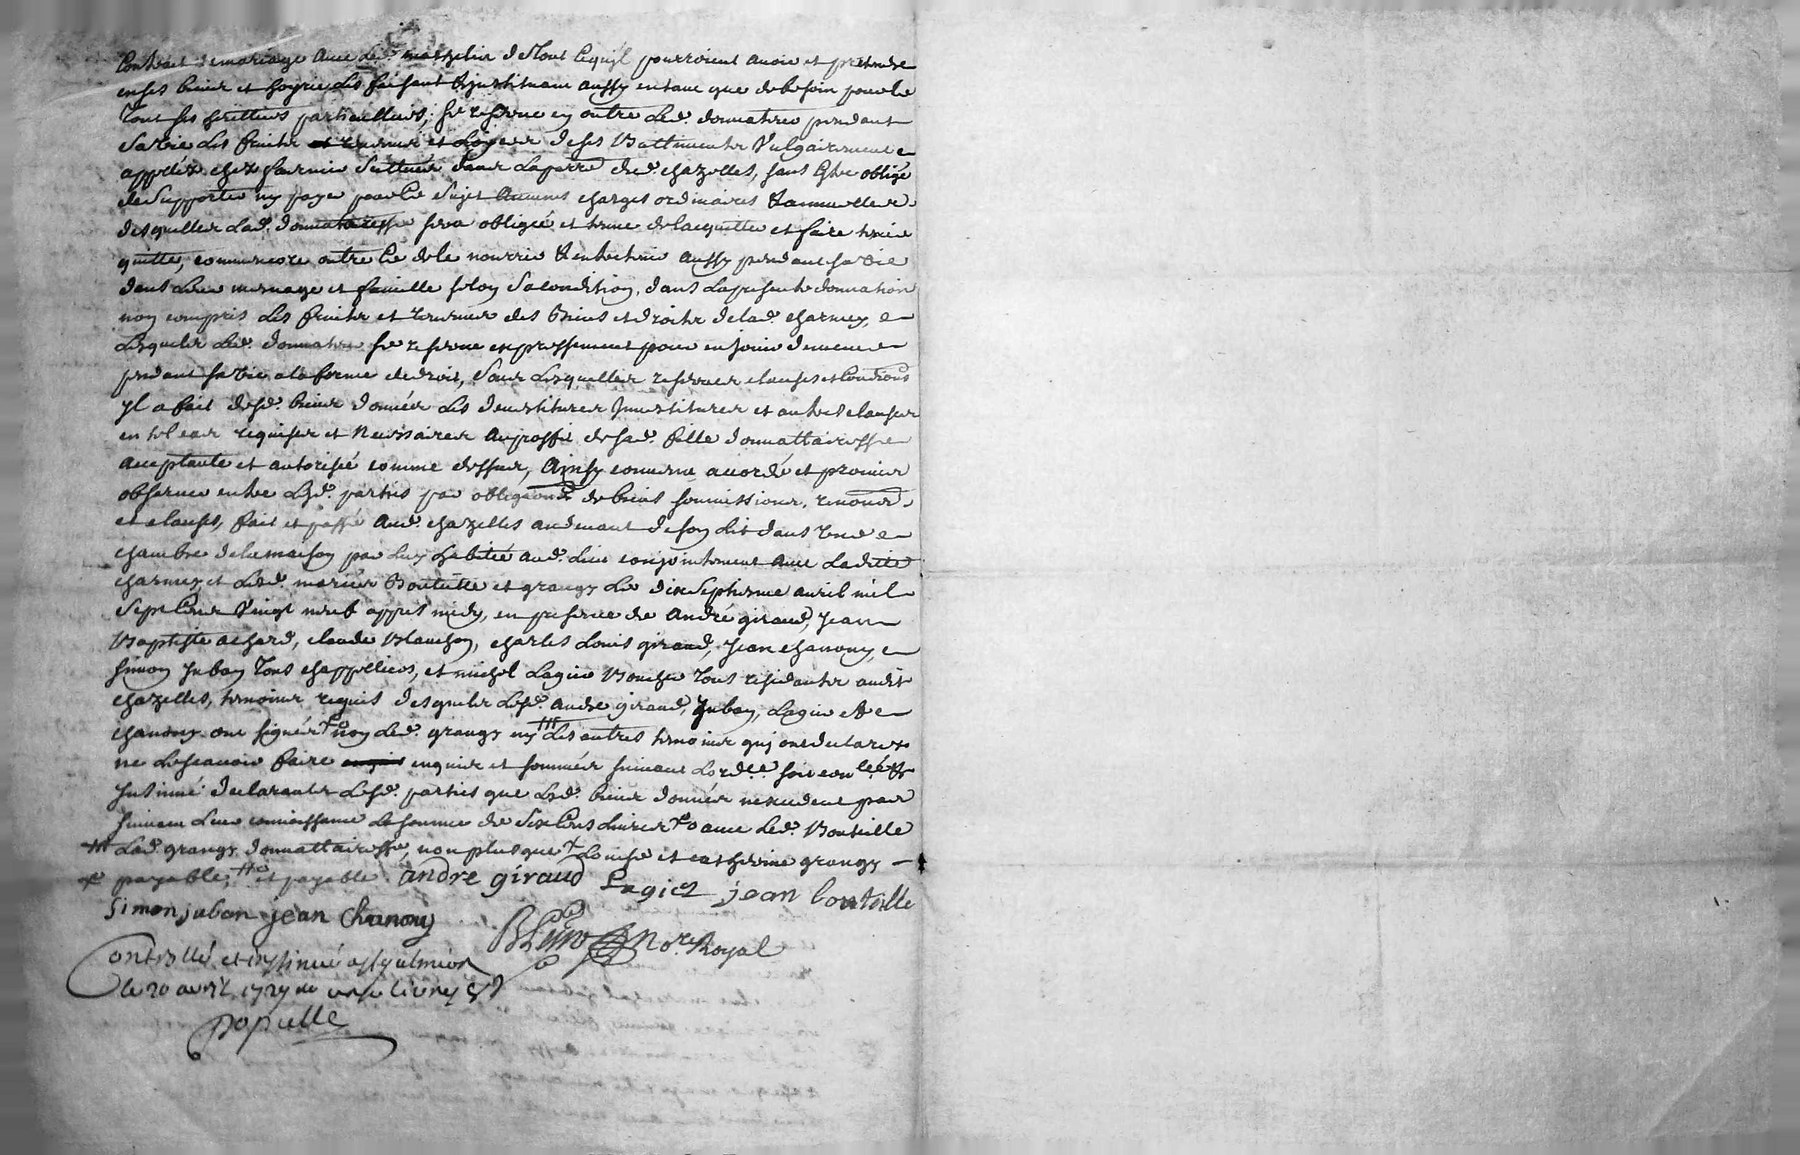 Contract de mariage avec led. mathelin de tout ce quil pourroient avoir et pretendre
en ses biens et hoyrie, les faisant & instituant aussy en tant que de besoin pour le
tout ses heritiers particulliers, se reserve en outre led. donnateur pendant
sa vie les fruits revenus et loyers de ses battiments vulgairement
appellés chez situés dans la parre dud. chazelles, sans estre obligé
de supporter ny payer pour ce sujet aucunes charges ordinaires & annuelles
desquelles lad. donnataresse sera obligée et tenue de lacquitter et faire tenir
quitte, comme encore outre ce de le nourrir & entretenir aussy pendant sa vie
dans leur mesnage et famille selon sa condition, dans la presente donnation
non compris les fruits et revenus des biens et droits de lad. charmey,
lesquels led. donnateur se reserve expressement pour en jouir de mesme
pendant sa vie a la forme de droit, sous lesquelles reserves clauses et conditions
yl a fait desd. biens donnés les devestitures investitures et autres clauses
en tel cas requises et necessaires au proffit de sad. fille donnattairesse
acceptante et autorisée comme dessus, Ainsy convenu accordé et promis
observer entre lesd. parties par obligaons de biens soumissions, renons
et clauses, fait et passé aud. chazelles au devant de son lit dans une
chambre de la maison par luy habitée aud. lieu conjointement avec laditte
charmey et lesd. mariés Bouteille et grangy le dixseptieme avril mil
sept cens vingt neuf appres midy, en presence de André giraud, Jean
Baptiste achard, claude Blanchon, charles Louis giraud, Jean chanony,
simon jubon tous chappelliers, et michel Lagier Boucher tous residants audit
chazelles, temoins requis desquels lesd. andré giraud, Jubon, Lagier et
chanony ont signé non led. grangy ny les autres temoins qui ont declarés
ne le scavoir faire enquis et sommés suivant lordce soit conllé &
insinué declarants lesd. parties que lesd. biens donnés nexcedent pas
suivant leur connoissance la somme de six cens livres avec led. Bouteille
lad. grangy donnattairesse, non plus que Louise et catherine grangy
payable, et payable. andre giraud Lagier jean boutaille
Simon jubon jean Chanony
No.re Royal
Controllé et insinué a St galmier
le 20 avril 1729 livres
populle